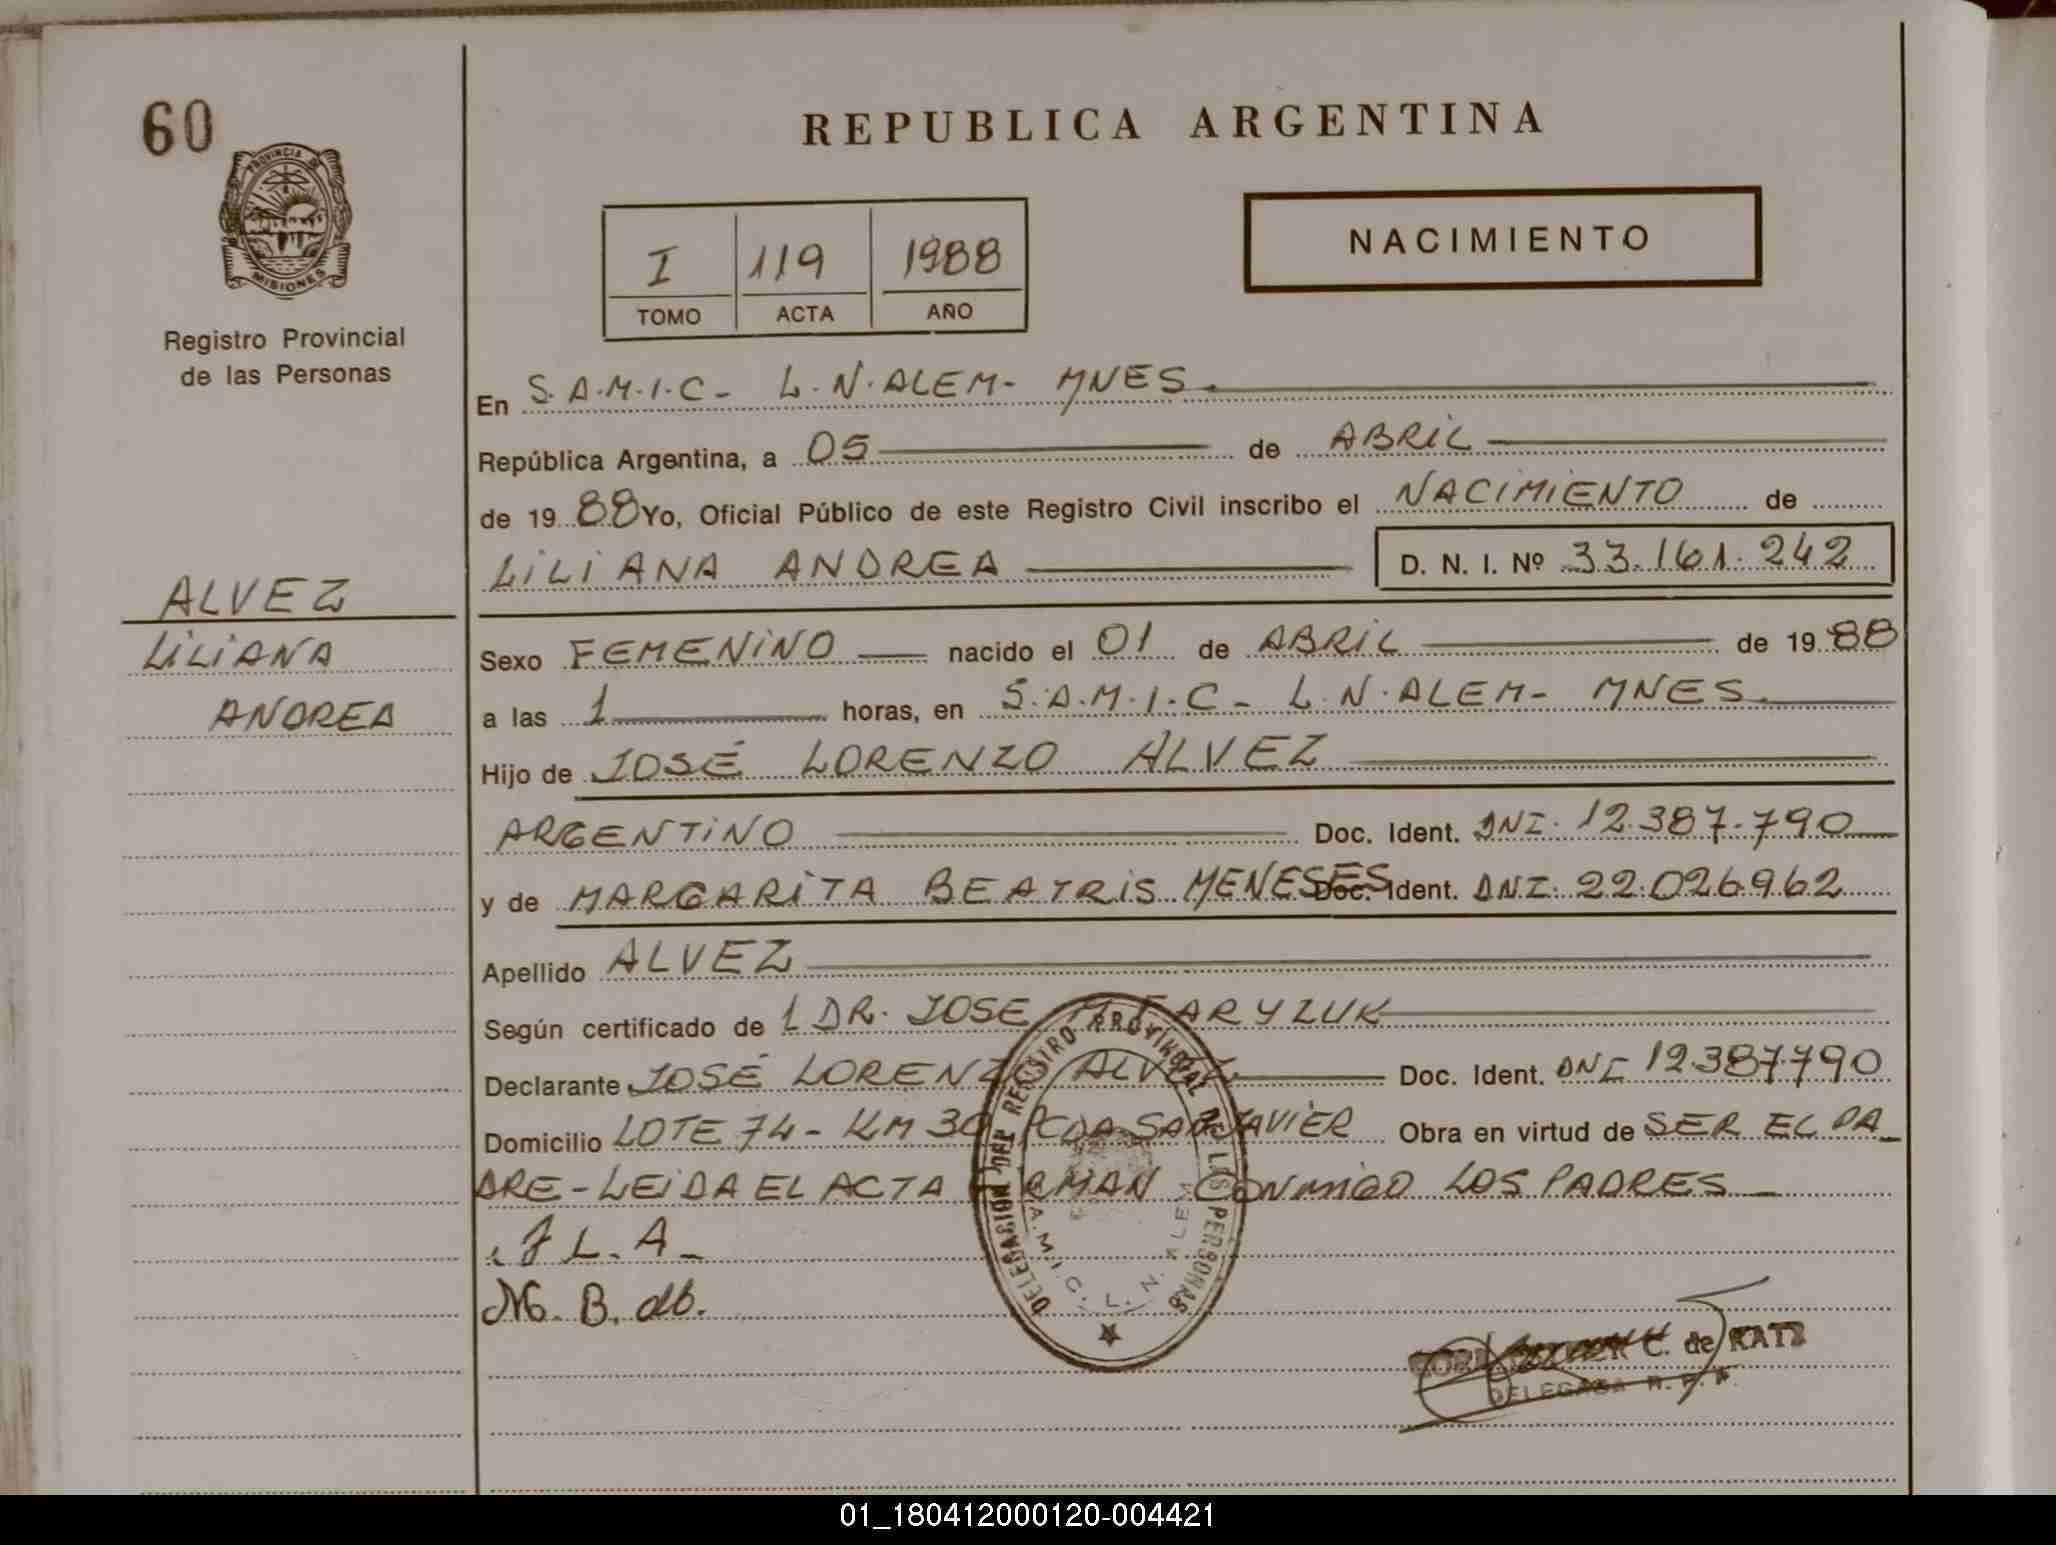 60
REPUBLICA ARGENTINA
PROVINCIA DE
MISIONES
Registro Provincial
de las Personas
I 119 1988
TOMO ACTA AÑO
NACIMIENTO
En S.A.M.I.C- L.N.ALEM- MNES.
República Argentina, a 05 de ABRIL
de 19 88 Yo, Oficial Público de este Registro Civil inscribo el NACIMIENTO de
LILIANA ANDREA D. N. I. Nº 33.161.242
ALVEZ
LILIANA
ANDREA
Sexo FEMENINO nacido el 01 de ABRIL de 19 88
a las 1 horas, en S.A.M.I.C- L.N.ALEM- MNES.
Hijo de JOSÉ LORENZO ALVEZ
ARGENTINO Doc. Ident. DNI. 12.387.790
y de MARGARITA BEATRIS MENESES Doc. Ident. DNI. 22.026.962
Apellido ALVEZ
Según certificado de 1 DR. JOSE M FARYZUK
Declarante JOSÉ LORENZO ALVEZ Doc. Ident. DNI 12.387.790
Domicilio LOTE 74- KM 30 PCDA SAN JAVIER Obra en virtud de SER EL PA
DRE-LEIDA EL ACTA FIRMAN CONMIGO LOS PADRES
J L. A
M. B. db.
DELEGACION DEL REGISTRO PROVINCIAL DE LAS PERSONAS
S.A.M.I.C. L. N. ALEM
C. de KATZ
DELEGADA R. P. P.
01_180412000120-004421